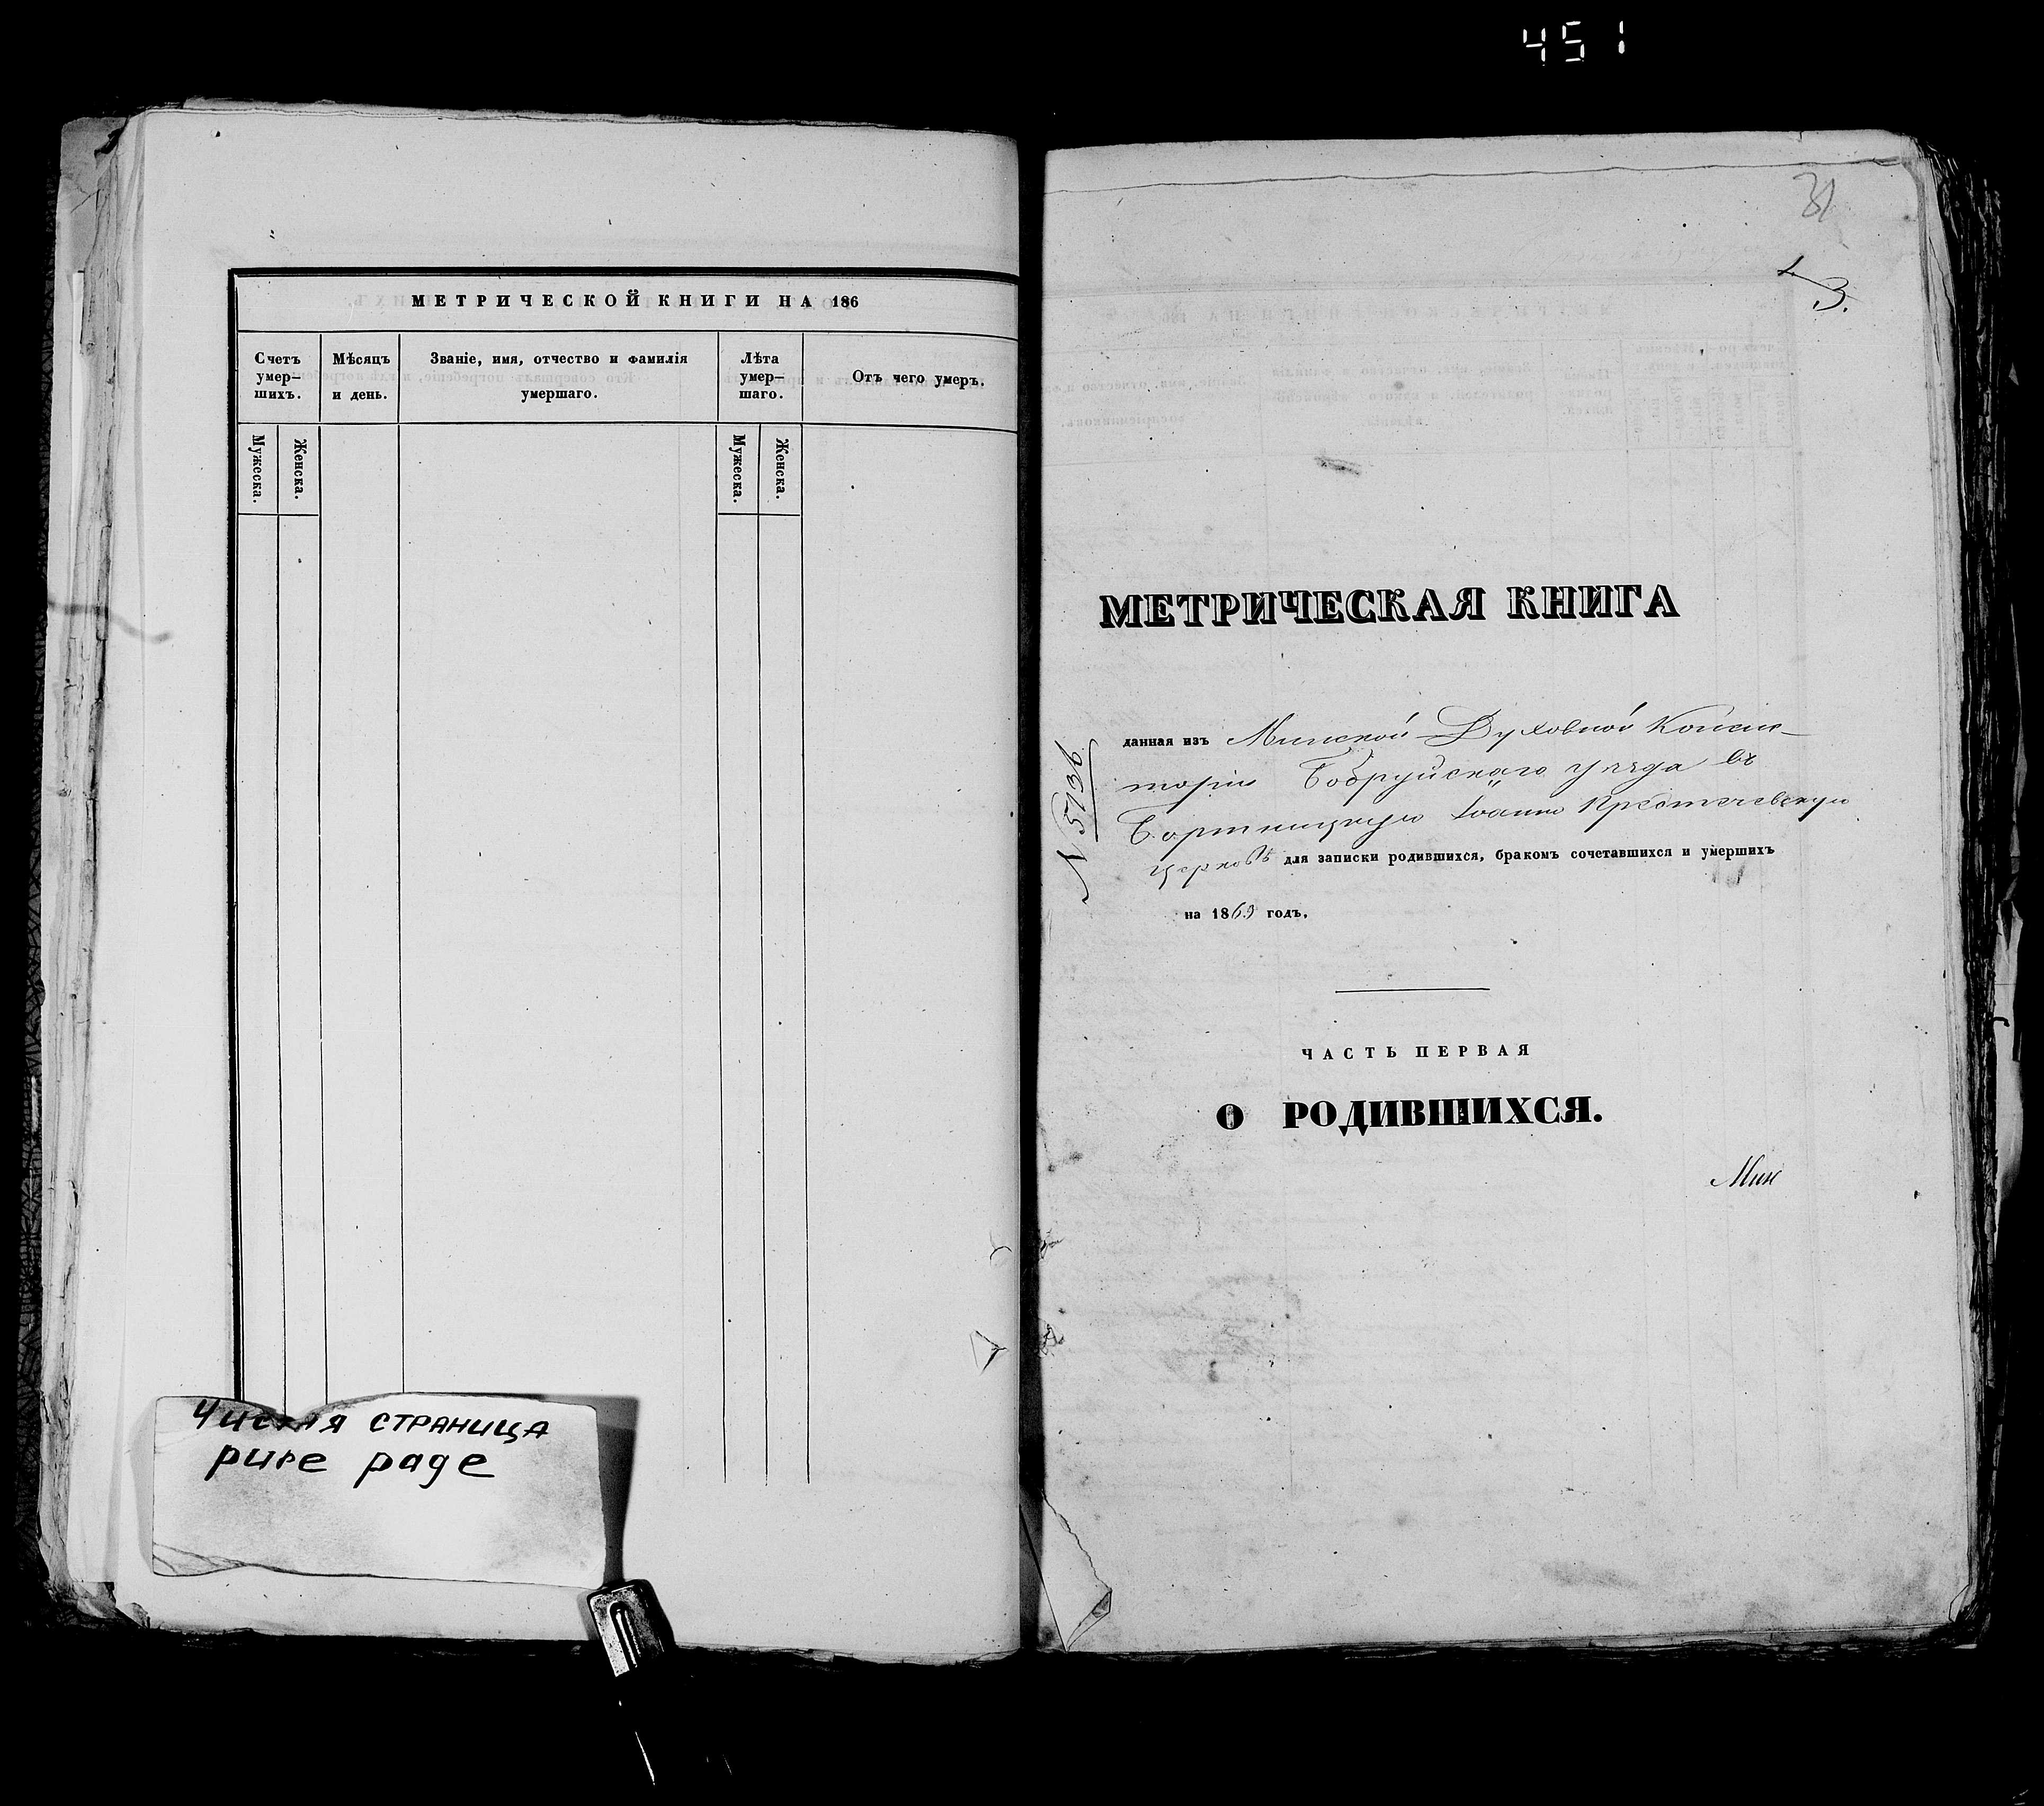 451
МЕТРИЧЕСКОЙ КНИГИ НА 186
Счетъ умер–шихъ.
Мѣсяцъ и день.
Званіе, имя, отчество и фамилія умершаго.
Лѣта умер–шаго.
Отъ чего умеръ.
Мужеска.
Женска.
Мужеска.
Женска.
Чистая страница
pure page
31
3.
МЕТРИЧЕСКАЯ КНИГА
№ 5736
данная изъ Минской Духовной Консис–
торіи Бобруйскаго уѣзда въ
Бортницкую Іоанно Крестичевскую
церковь для записки родившихся, бракомъ сочетавшихся и умершихъ
на 1869 годъ.
ЧАСТЬ ПЕРВАЯ
О РОДИВШИХСЯ.
Мин